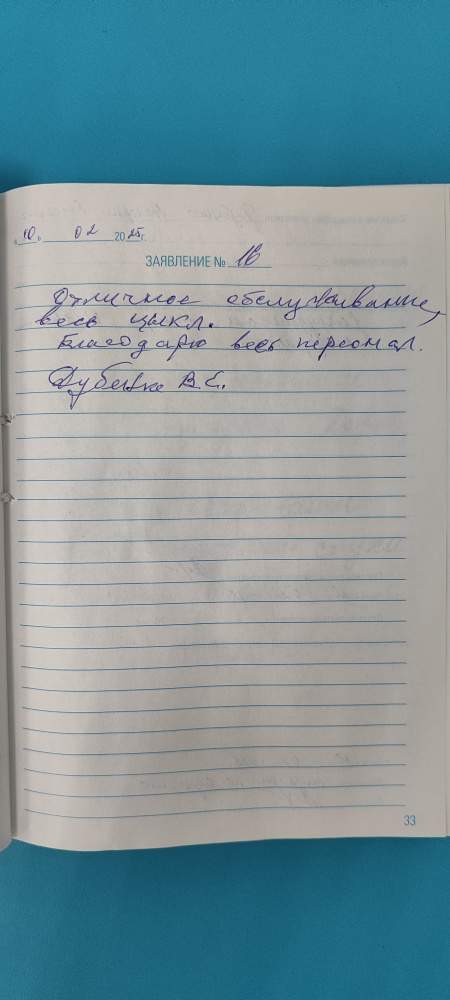 „10„ 02 2025г.
ЗАЯВЛЕНИЕ № 16
Отличное обслуживание,
весь цикл.
Благодарю весь персонал.
В.Е.
33